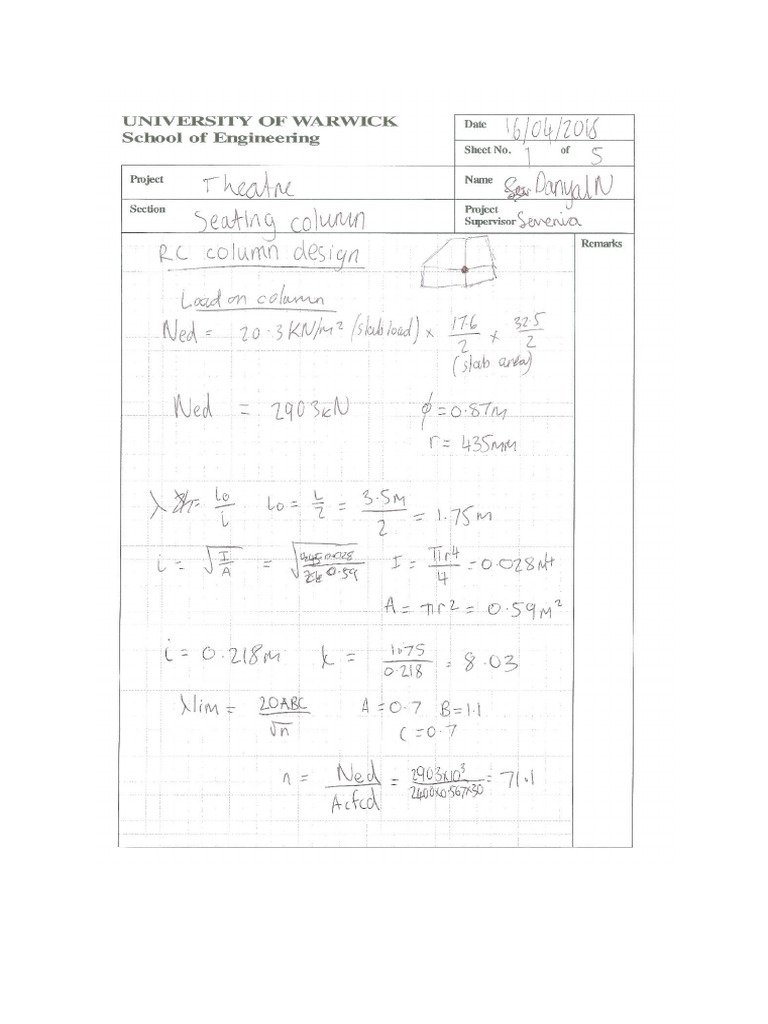 UNIVERSITY OF WARWICK
School of Engineering
Date 16/04/2018
Sheet No. 1 of 5
Project Theatre
Name DanyalN
Section Seating column
Project Supervisor Severnia
Remarks
RC column design
Load on column
Ned = 20.3KN/m² (slab load) × 17.6/2 × 32.5/2
(slab area)
Ned = 2903kN ϕ=0.87m
r= 435mm
λ = lo/i lo = L/2 = 3.5m/2 = 1.75m
i = √(I/A) = √(0.028/0.59) I = πr4/4 = 0.028m4
A = πr2 = 0.59m²
i = 0.218m k = 1.75/0.218 = 8.03
λlim = 20ABC/√n A=0.7 B=1.1
C=0.7
n = Ned/Acfcd = 2903×10³/2400×0.567×30 = 71.1